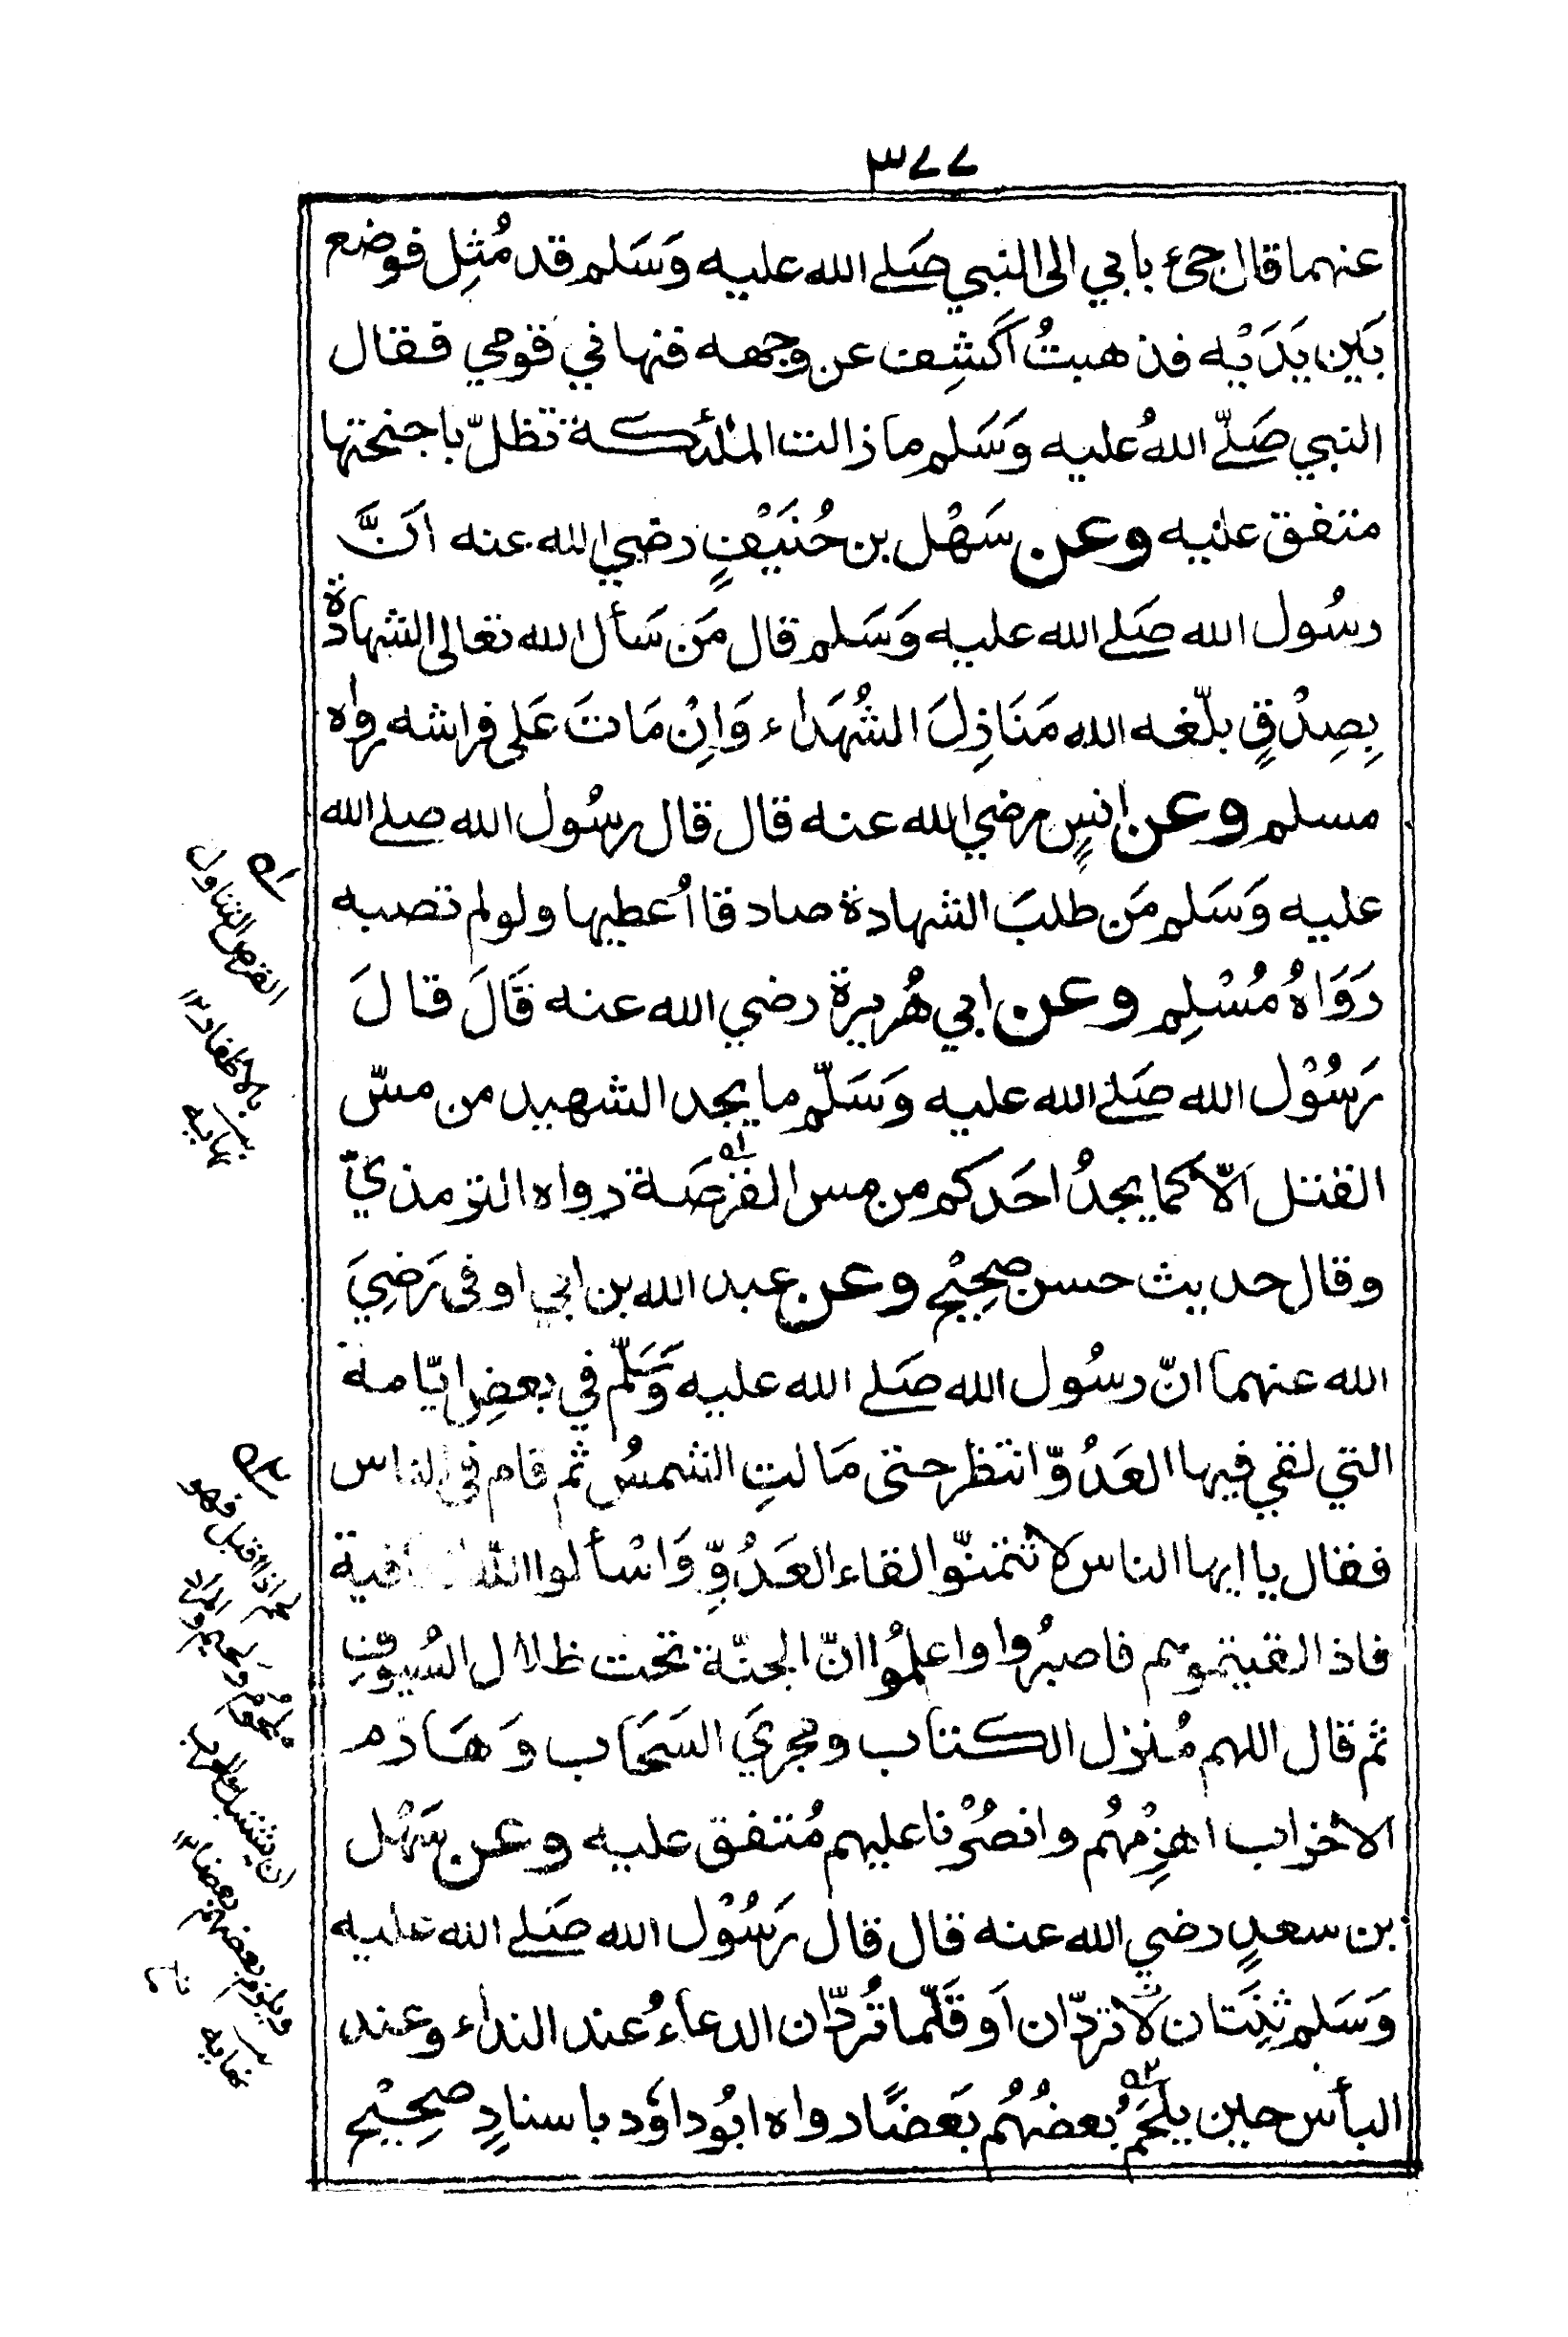 ٣٧٧
عنهما قال جئ بابي الى النبي صَلے الله عليه وَسَلم قد مُثِل فوضع
بَين يَدَيْه فذهبتُ اَكشِف عن وجهه فنهاني قومي فقال
النبي صَلّے اللهُ عليه وَسَلم ما زالت الملٰئكة تظلّ باجنحتها
متفق عليه وعن سَهْل بن حُنَيْفٍ رضي الله عنه انَّ
رسُول الله صَلے الله عليه وَسَلم قال مَن سَأل الله تعالى الشهادة
بِصِدْقٍ بلّغه الله مَنَازِلَ الشُهَداء وَاِنْ مَاتَ عَلى فراشه رواه
مسلم وعن انسٍ رضي الله عنه قال قال رسُول الله صلے الله
عليه وَسَلم مَن طلبَ الشهادة صادقا اُعطيها ولو لم تصبه
رَوَاهُ مُسْلِم وعن ابي هُريرة رضي الله عنه قَالَ قالَ
رَسُوْل الله صَلے الله عليه وَسَلّم ما يجد الشهيد من مسّ
القتل الّا كما يجدُ احَدكم من مس القرْصَة رواه الترمذيّ
وقال حديث حسن صحِيْح وعن عبد الله بن ابي اوفى رَضِيَ
الله عنهما انّ رسُول الله صَلے الله عليه وَسَلّم في بعضِ ايّامه
التي لقي فيها العَدُوّ انتظر حتى مَالتِ الشمسُ ثم قام فى الناس
فقال يا ايها الناس لا تتمنّوا لقاء العَدُوِّ وَاسْألوا الله العافية
فاذا لقيتموهم فاصبرُوا واعلمُوا انّ الجنّة تحت ظلال السُيوفِ
ثم قال اللهم مُنزل الكتاب ومُجريَ السَحَاب وَهَازم
الاحزاب اهزِمْهُم وانصُرْنا عليهم مُتفق عليه وعن سَهْل
بن سعدٍ رضي الله عنه قال قال رَسُوْل الله صَلے الله عليه
وَسَلم ثِنتَان لا تردّان اَو قَلّما تُردّان الدعاءُ عند النداء وعند
البأس حين يلحَمُ بعضُهُم بَعضًا رواه ابُو داوٗد باسنادٍ صحِيْح
القرص التناول
بالاظفار ١٢
نهايه
ويلزم بعضهم بعضا ١٢
نهايه